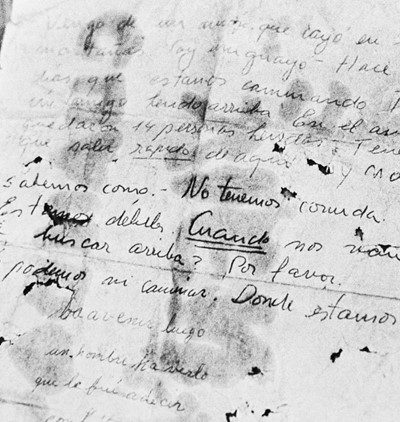 Vengo de un avión que cayó en
montañas. Soy uruguayo. Hace
días que estamos caminando.
un amigo herido arriba. En el
quedaron 14 personas heridas. Tene
que salir rápido de aquí y no
sabemos como.- No tenemos comida.
Estamos débiles. Cuando nos van
a buscar arriba? Por favor.
podemos ni caminar. Donde estamos
va a venir luego
un hombre
que le fue a decir